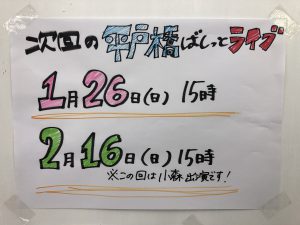 次回の平戸橋ばしっとライブ
1月26日(日)15時
2月16日(日)15時
※この回は小森出演です!